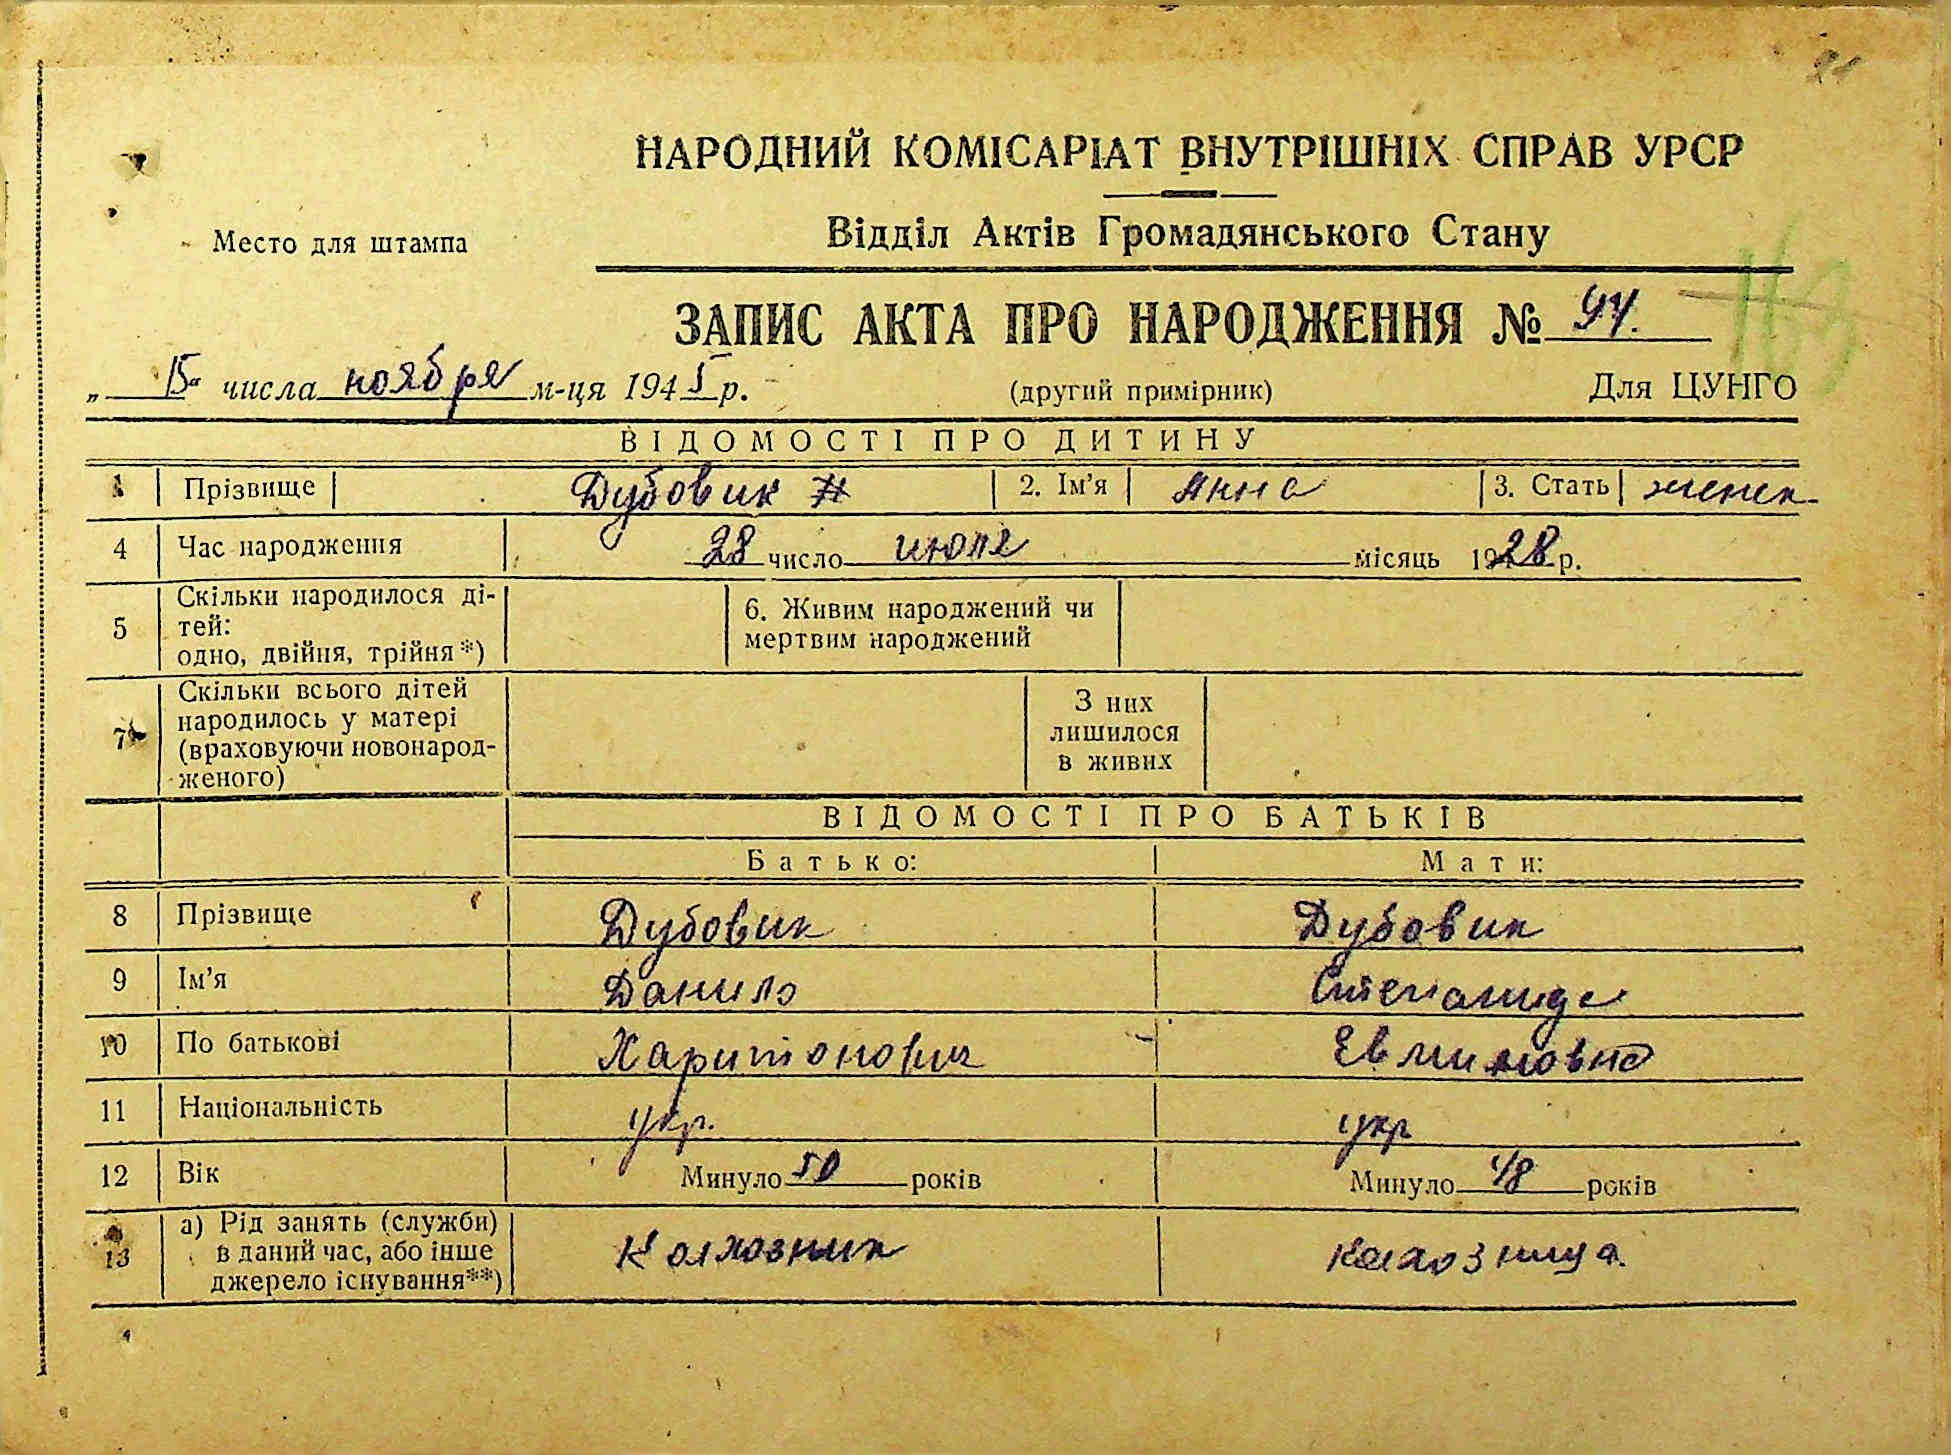 НАРОДНИЙ КОМІСАРІАТ ВНУТРІШНІХ СПРАВ УРСР
Место для штампа
Відділ Актів Громадянського Стану
ЗАПИС АКТА ПРО НАРОДЖЕННЯ № 94.
163
„ 15 “ числа ноября м-ця 1945 р. (другий примірник) Для ЦУНГО
ВІДОМОСТІ ПРО ДИТИНУ
1 Прізвище Дубовик 2. Ім'я Анна 3. Стать женск.
4 Час народження 28 число июля місяць 1928 р.
5 Скільки народилося ді-
тей:
одно, двійня, трійня*)
6. Живим народжений чи
мертвим народжений
7 Скільки всього дітей
народилось у матері
(враховуючи новонарод-
женого)
З них
лишилося
в живих
ВІДОМОСТІ ПРО БАТЬКІВ
Батько: Мати:
8 Прізвище Дубовик Дубовик
9 Ім'я Данило Степанида
10 По батькові Харитонович
11 Національність укр. укр
12 Вік Минуло 50 років Минуло 48 років
13 а) Рід занять (служби)
в даний час, або інше
джерело існування**)
Колхозник колхозница.